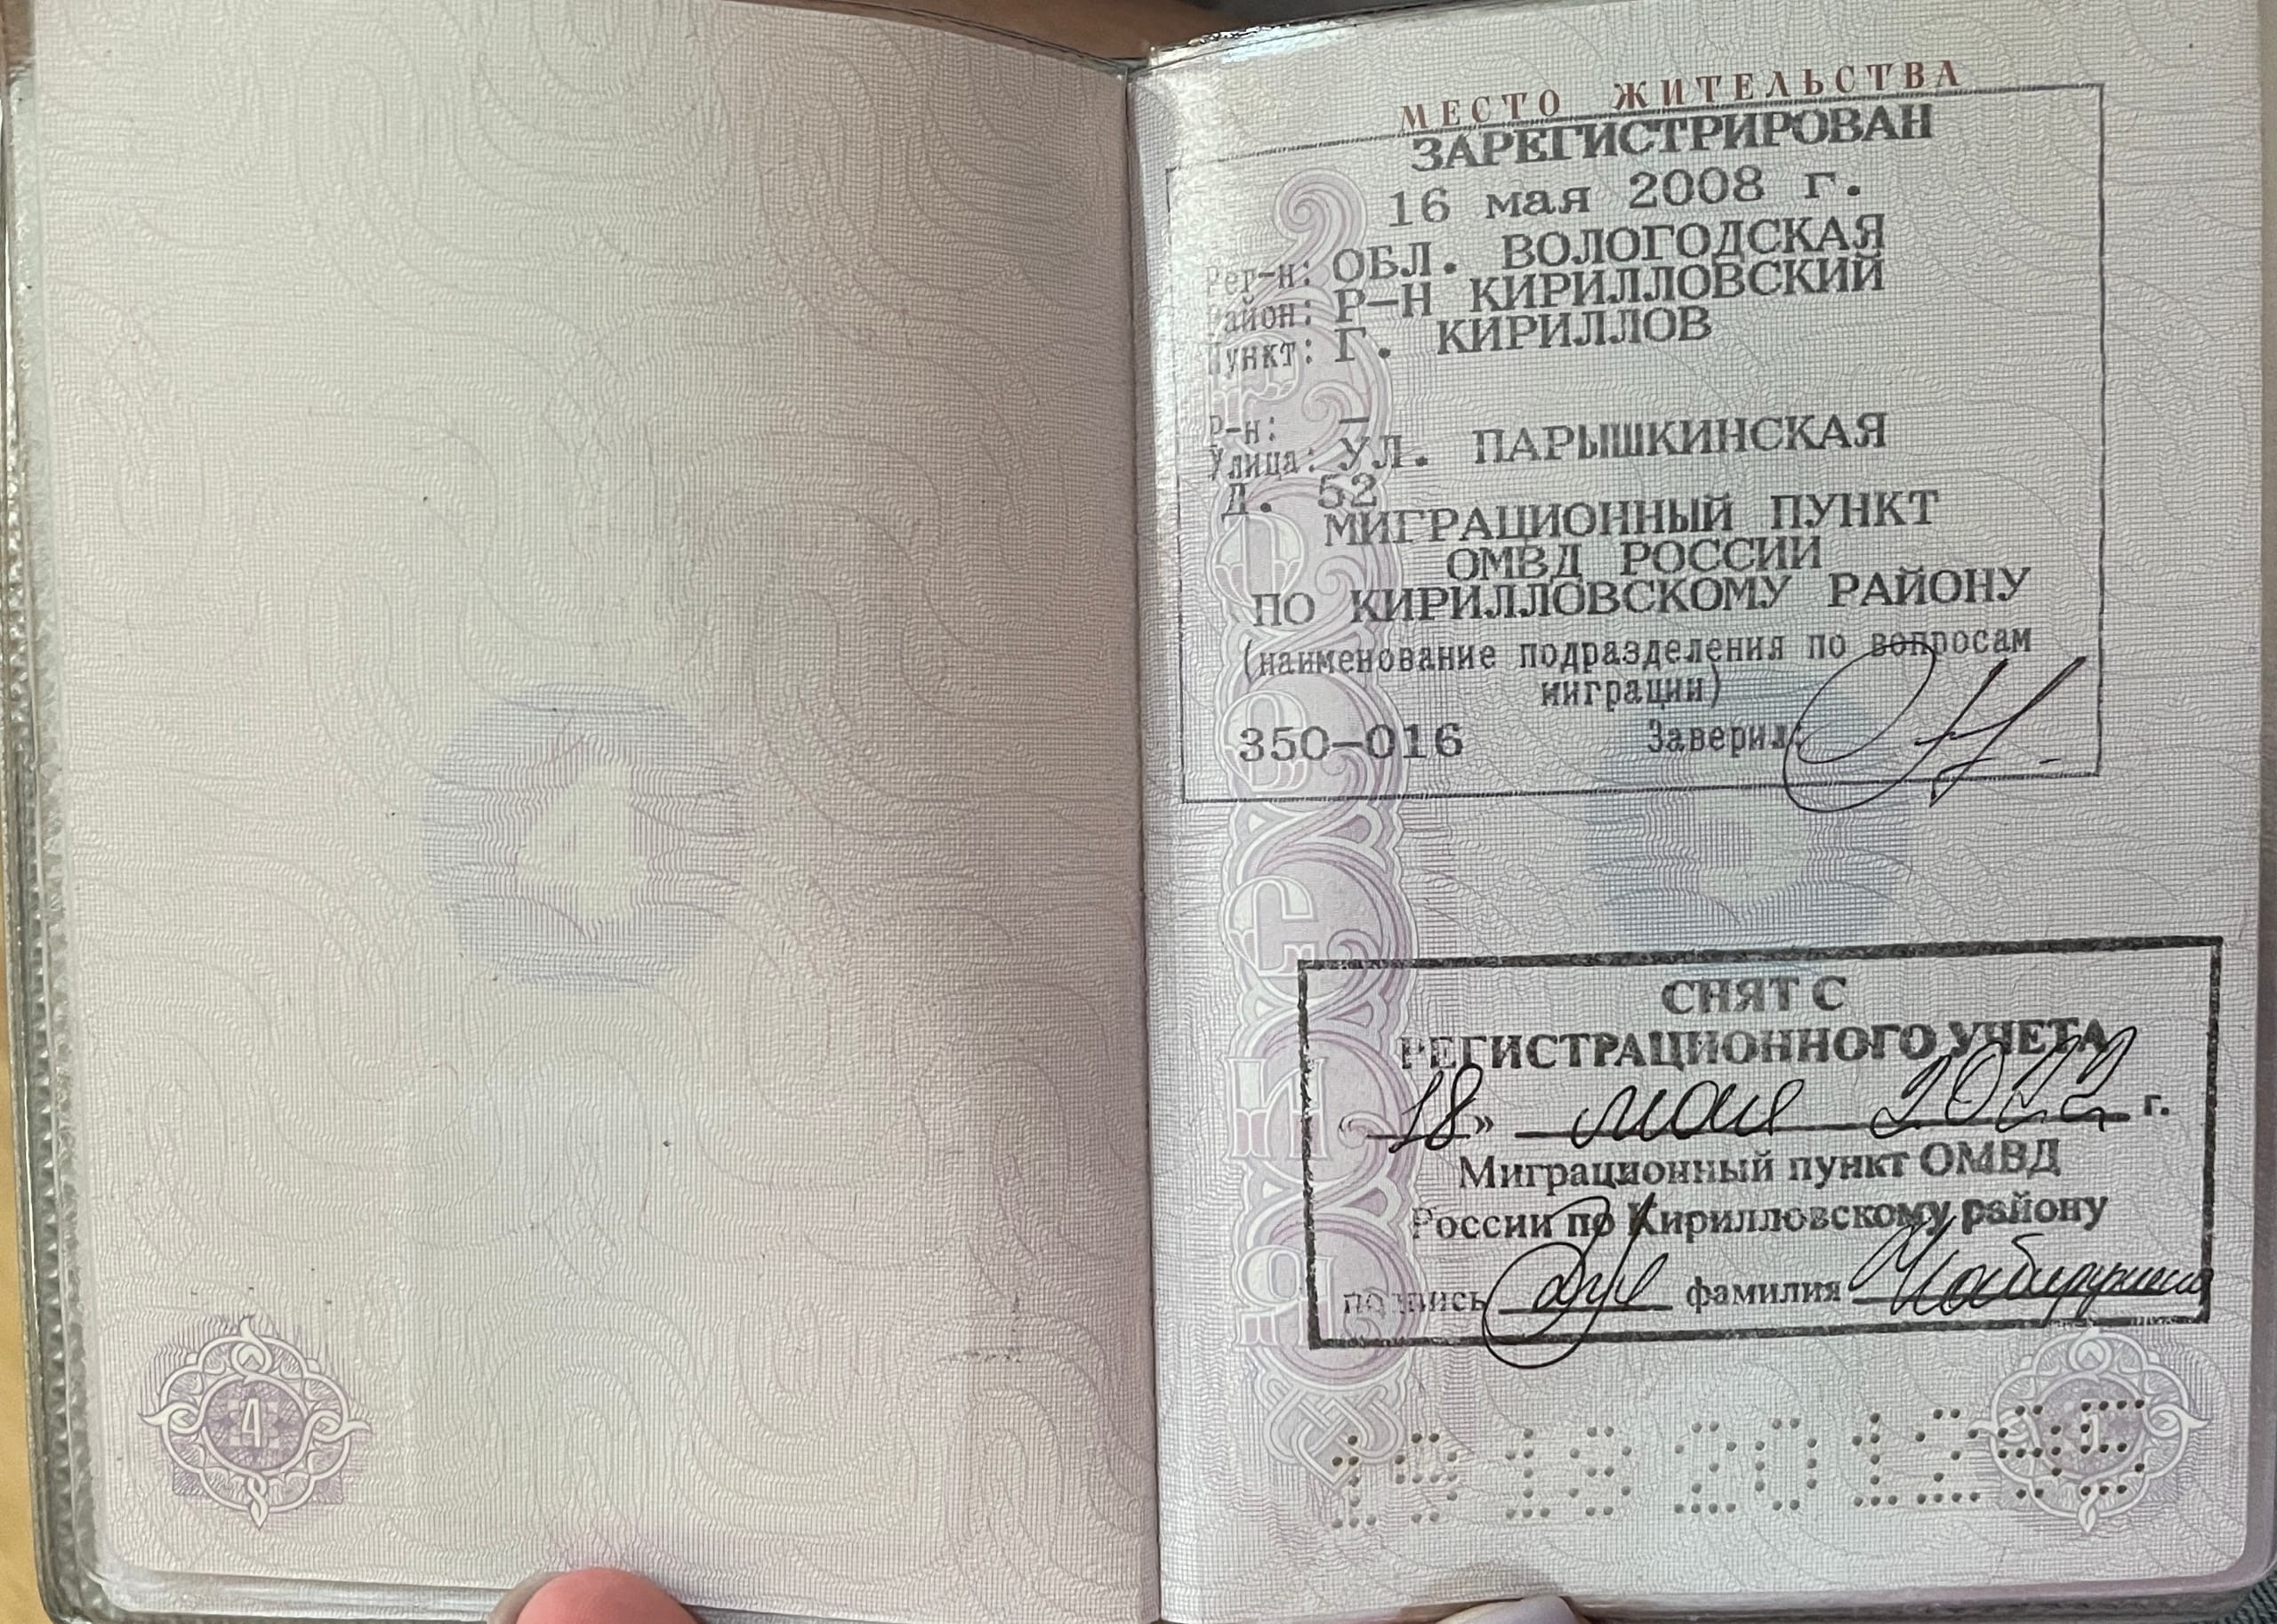 МЕСТО ЖИТЕЛЬСТВА
ЗАРЕГИСТРИРОВАН
16 мая 2008 г.
Рег-н: ОБЛ. ВОЛОГОДСКАЯ
Район: Р-Н КИРИЛЛОВСКИЙ
Пункт: Г. КИРИЛЛОВ
Р-н: –
Улица: УЛ. ПАРЫШКИНСКАЯ
Д. 52
МИГРАЦИОННЫЙ ПУНКТ
ОМВД РОССИИ
ПО КИРИЛЛОВСКОМУ РАЙОНУ
(наименование подразделения по вопросам
миграции)
350-016 Заверил
СНЯТ С
РЕГИСТРАЦИОННОГО УЧЕТА
«18» мая 2022 г.
Миграционный пункт ОМВД
России по Кирилловскому району
подпись фамилия
РОССИЯ
4
4
5